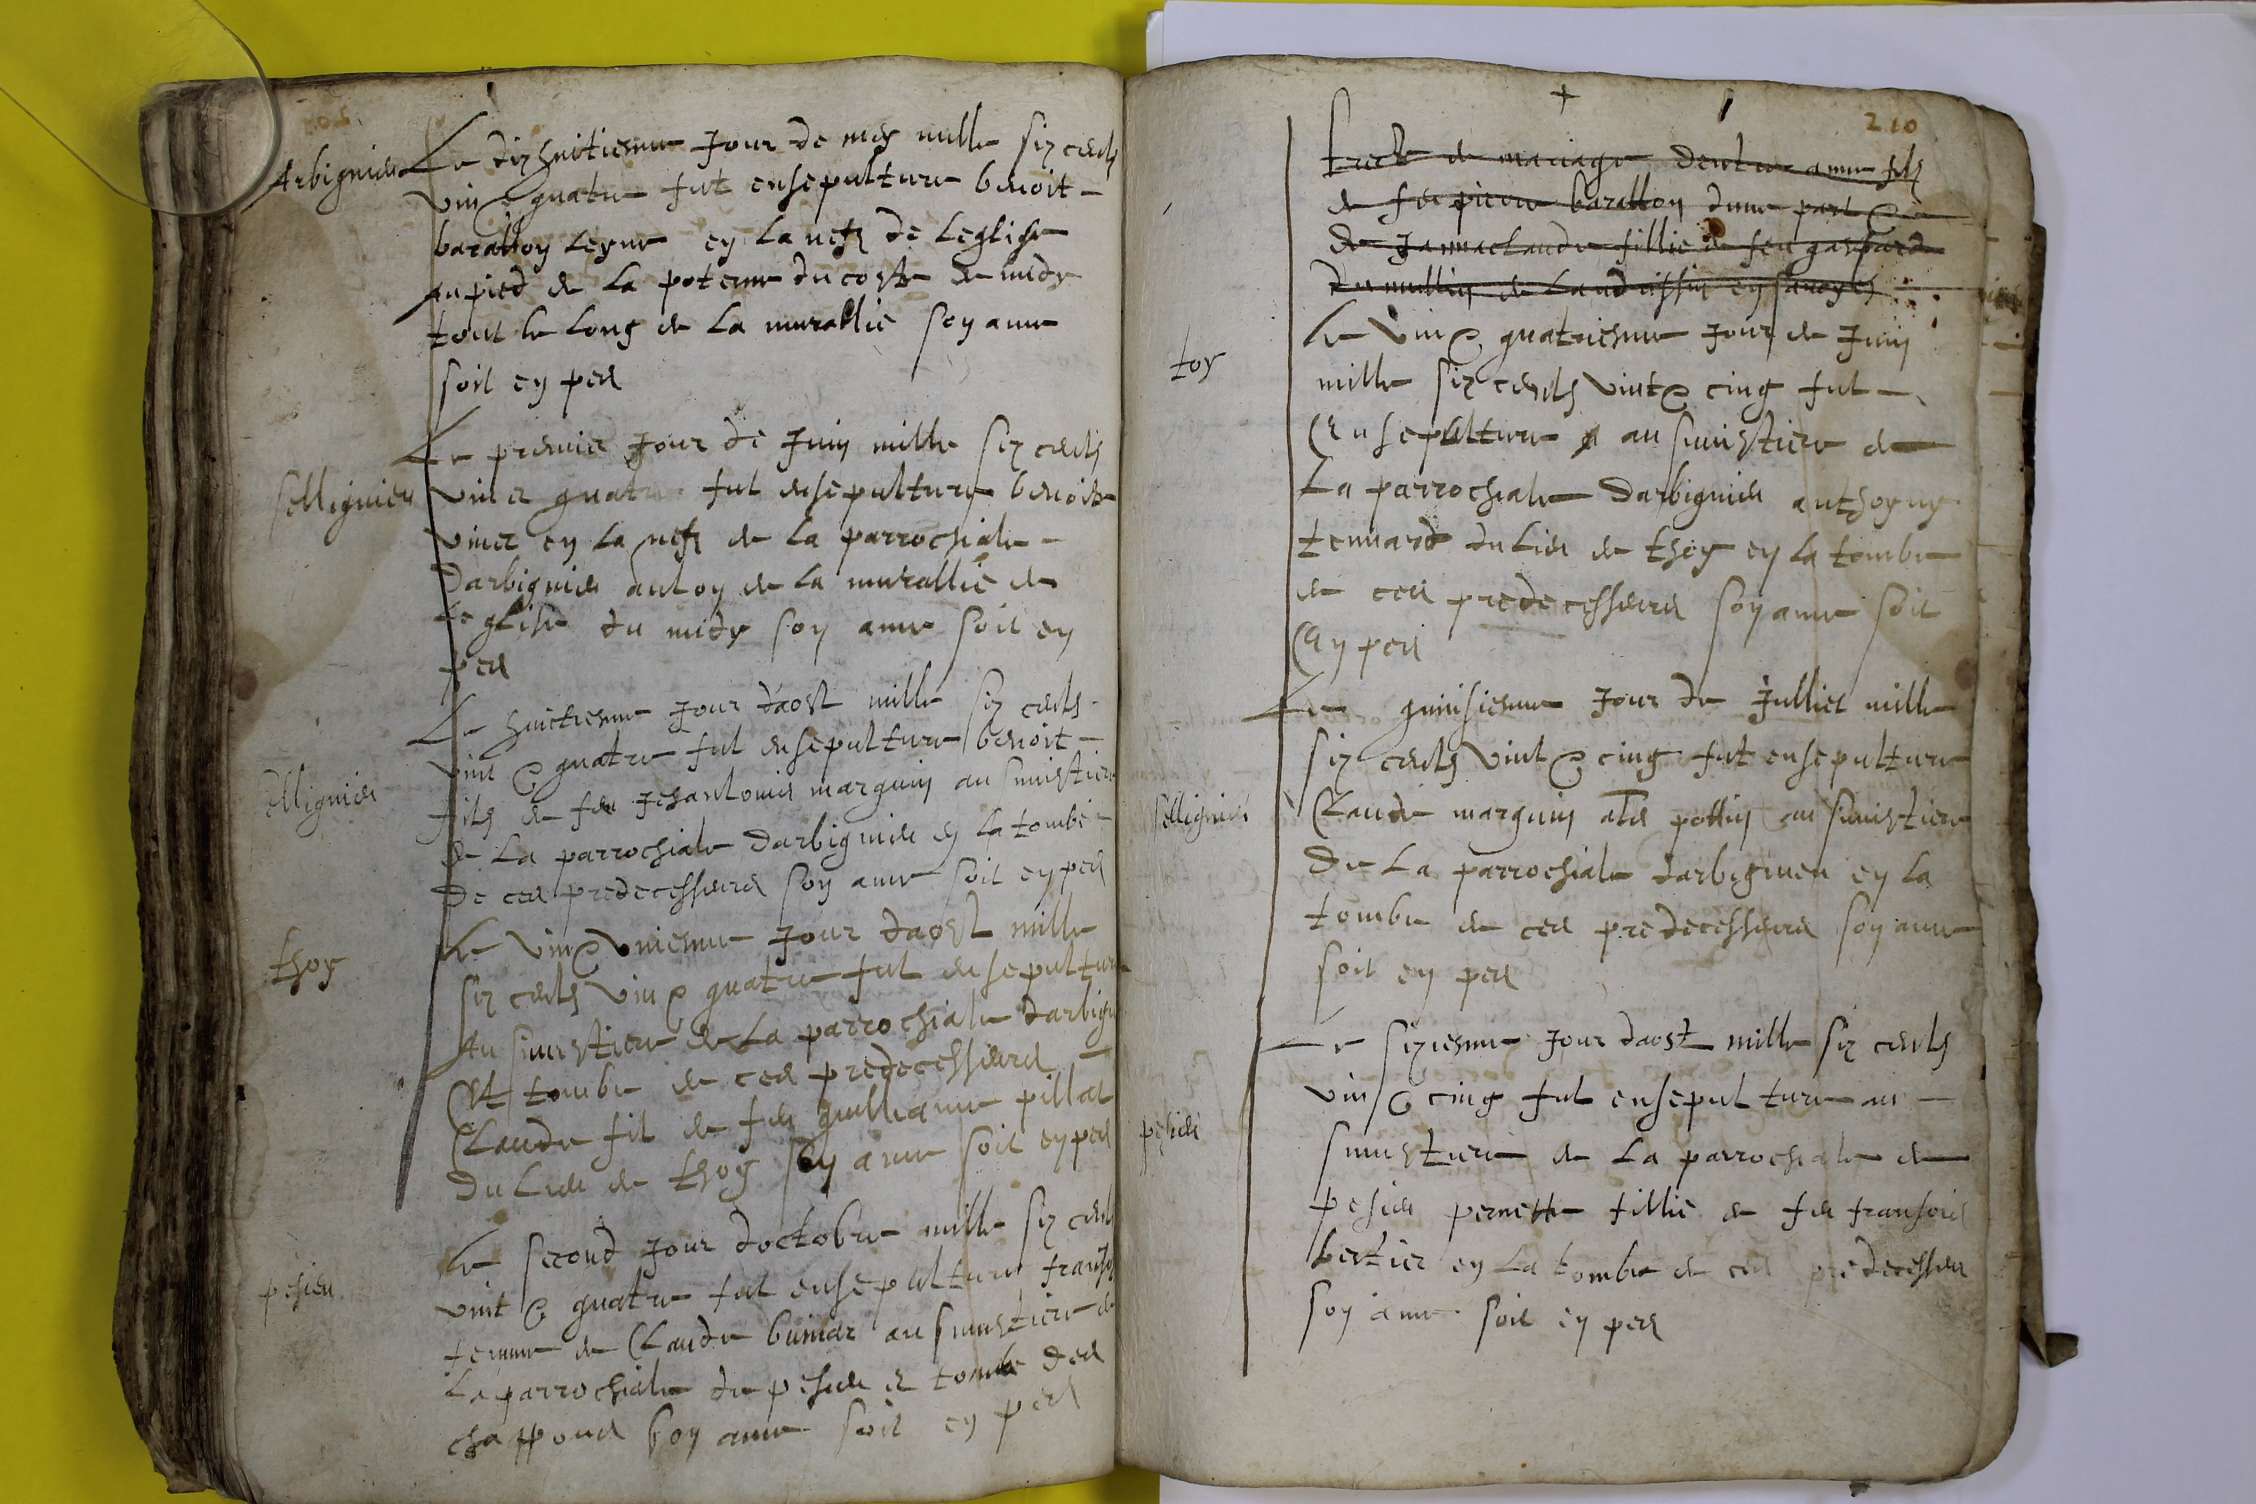 Arbignieu
Le dixhuitiesme Jour de mey mille six cents
vin & quatre fut ensepulture benoit
baratton leyne en la nefz de leglise
au pied de la poterne du coste de midy
tout le long de la murallie son ame
soit en pes
sellignieu
Le premier Jour de Juin mille six cents
vint et quatre fut ensepulture benoiste
vivier en la nefz de la parrochiale
Darbignieu auloy de la murallie de
leglise du midy son ame soit en
pes
sellignieu
Le huictiesme Jour daost mille six cents
vint & quatre fut ensepulture benoit
filz de feu Jehanlouis marguin au simistiere
de la parrochiale darbignieu en la tombe
de ces predecesseurs son ame soit en pes
thoy
Le vin & vniesme Jour daost mille
six cents vin & quatre fut ensepulture
au simistiere de la parrochiale darbign
Et tombe de ces predecesseurs
Claude fil de feu guilliaume pillat
du lieu de thoy son ame soit en pes
pesieu
Le second Jour doctobre mille six cents
vint & quatre fut ensepulture franso
femme de Claude bimar au simistiere de
La parrochiale de pesieu et tombe des
chappous son ame soit en pes
210
trecte de mariage dentre ame filz
de feu pierre baratton dune part &
de Jannaclaude fillie de feu gaspard
du mullin de Landressin en savoyes
toy
Le vin & quatriesme Jour de Juin
mille six cents vint & cinq fut
Ensepulture au simistiere de
La parrochiale darbignieu anthoyny
tenvard du lieu de thoy en la tombe
de ces predecesseurs son ame soit
En pes
sellignieu
Le quinsiesme Jour de Julliet mille
six cents vint & cinq fut ensepulture
Claude marguin als pollin au simistiere
de La parrochiale darbignieu en la
tombe de ces predecesseurs son ame
soit en pes
pesieu
Le sixiesme Jour daost mille six cents
vin & cinq fut ensepulture au
simistiere de la parrochiale de
pesieu pernette fillie de feu fransois
bertier en la tombe de ces predecesseu
son ame soit en pes